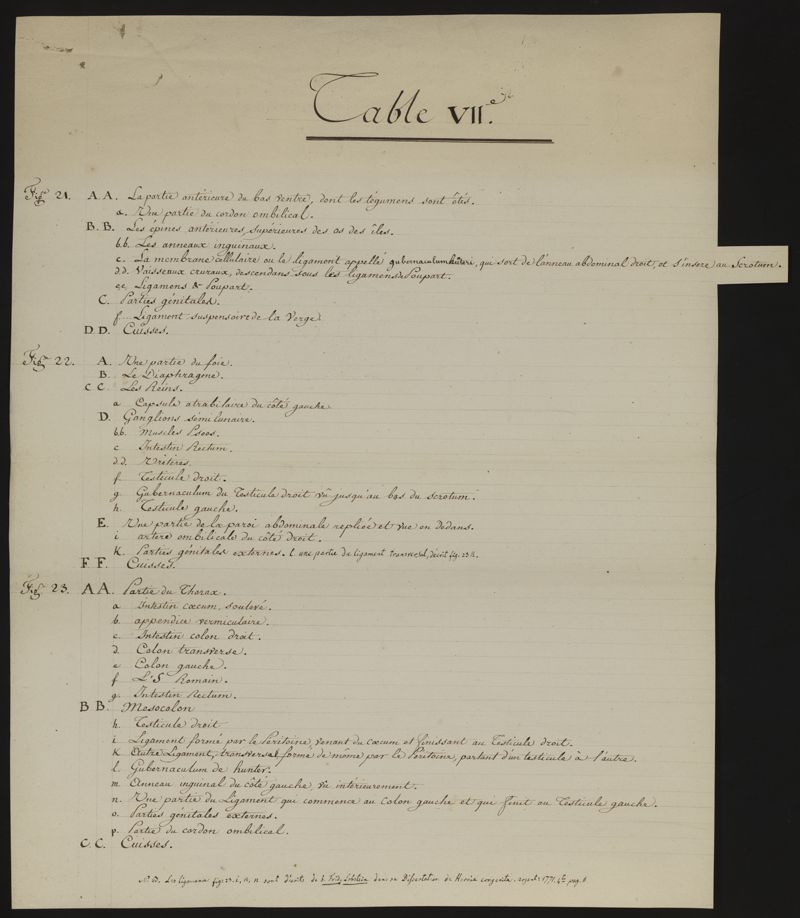 Table VII.e
Fig. 21. A.A. La partie antérieure du bas ventre, dont les tégumens sont ôtés.
a. Une partie du cordon ombilical.
B.B. Les épines antérieures, supérieures des os des îles.
b.b. Les anneaux inguinaux.
c. La membrane cellulaire ou le ligament appellé gubernaculum hunteri, qui sort de l'anneau abdominal droit, et s'insere au Scrotum.
d.d. Vaisseaux cruraux, descendans sous les ligamens de Poupart.
ee Ligamens de Poupart.
C. Parties génitales.
f Ligament suspensoire de la Verge
D.D. Cuisses.
Fig. 22. A. Une partie du foie.
B. Le Diaphragme.
C C. Les Reins.
a Capsule atrabilaire du côté gauche
D. Ganglions sémilunaire.
b.b. Muscles Psoas.
c Intestin Rectum.
d.d. Urétères.
f Testicule droit.
g. Gubernaculum du Testicule droit vû jusqu'au bas du scrotum.
h. Testicule gauche.
E. Une partie de la paroi abdominale repliée et vue en dedans.
i artere ombilicale du côté droit.
k. Parties génitales externes. l une partie du ligament transversal, décrit fig. 23 k.
F F. Cuisses.
Fig. 23. A A. Partie du Thorax.
a Intestin cœcum, soulevé.
b. appendice vermiculaire.
c. Intestin colon droit.
d. Colon transverse.
e Colon gauche.
f L'S Romain.
g. Intestin Rectum.
B B. Mesocolon
h. Testicule droit
i Ligament formé par le Péritoine, venant du cœcum et finissant au Testicule droit.
k Autre Ligament, transversal, formé de même par le Péritoine, partant d'un testicule à l'autre.
l. Gubernaculum de hunter.
m Anneau inguinal du côté gauche, vu intérieurement.
n. Une partie du Ligament qui commence au Colon gauche et qui finit au Testicule gauche.
o. Parties génitales externes.
p. Partie du cordon ombilical.
C. C. Cuisses.
Les ligamens fig. 23. i, k, n sont décrits de Lobstein dans sa Dissertation de Hernia congenita 1771. 4° pag. 8